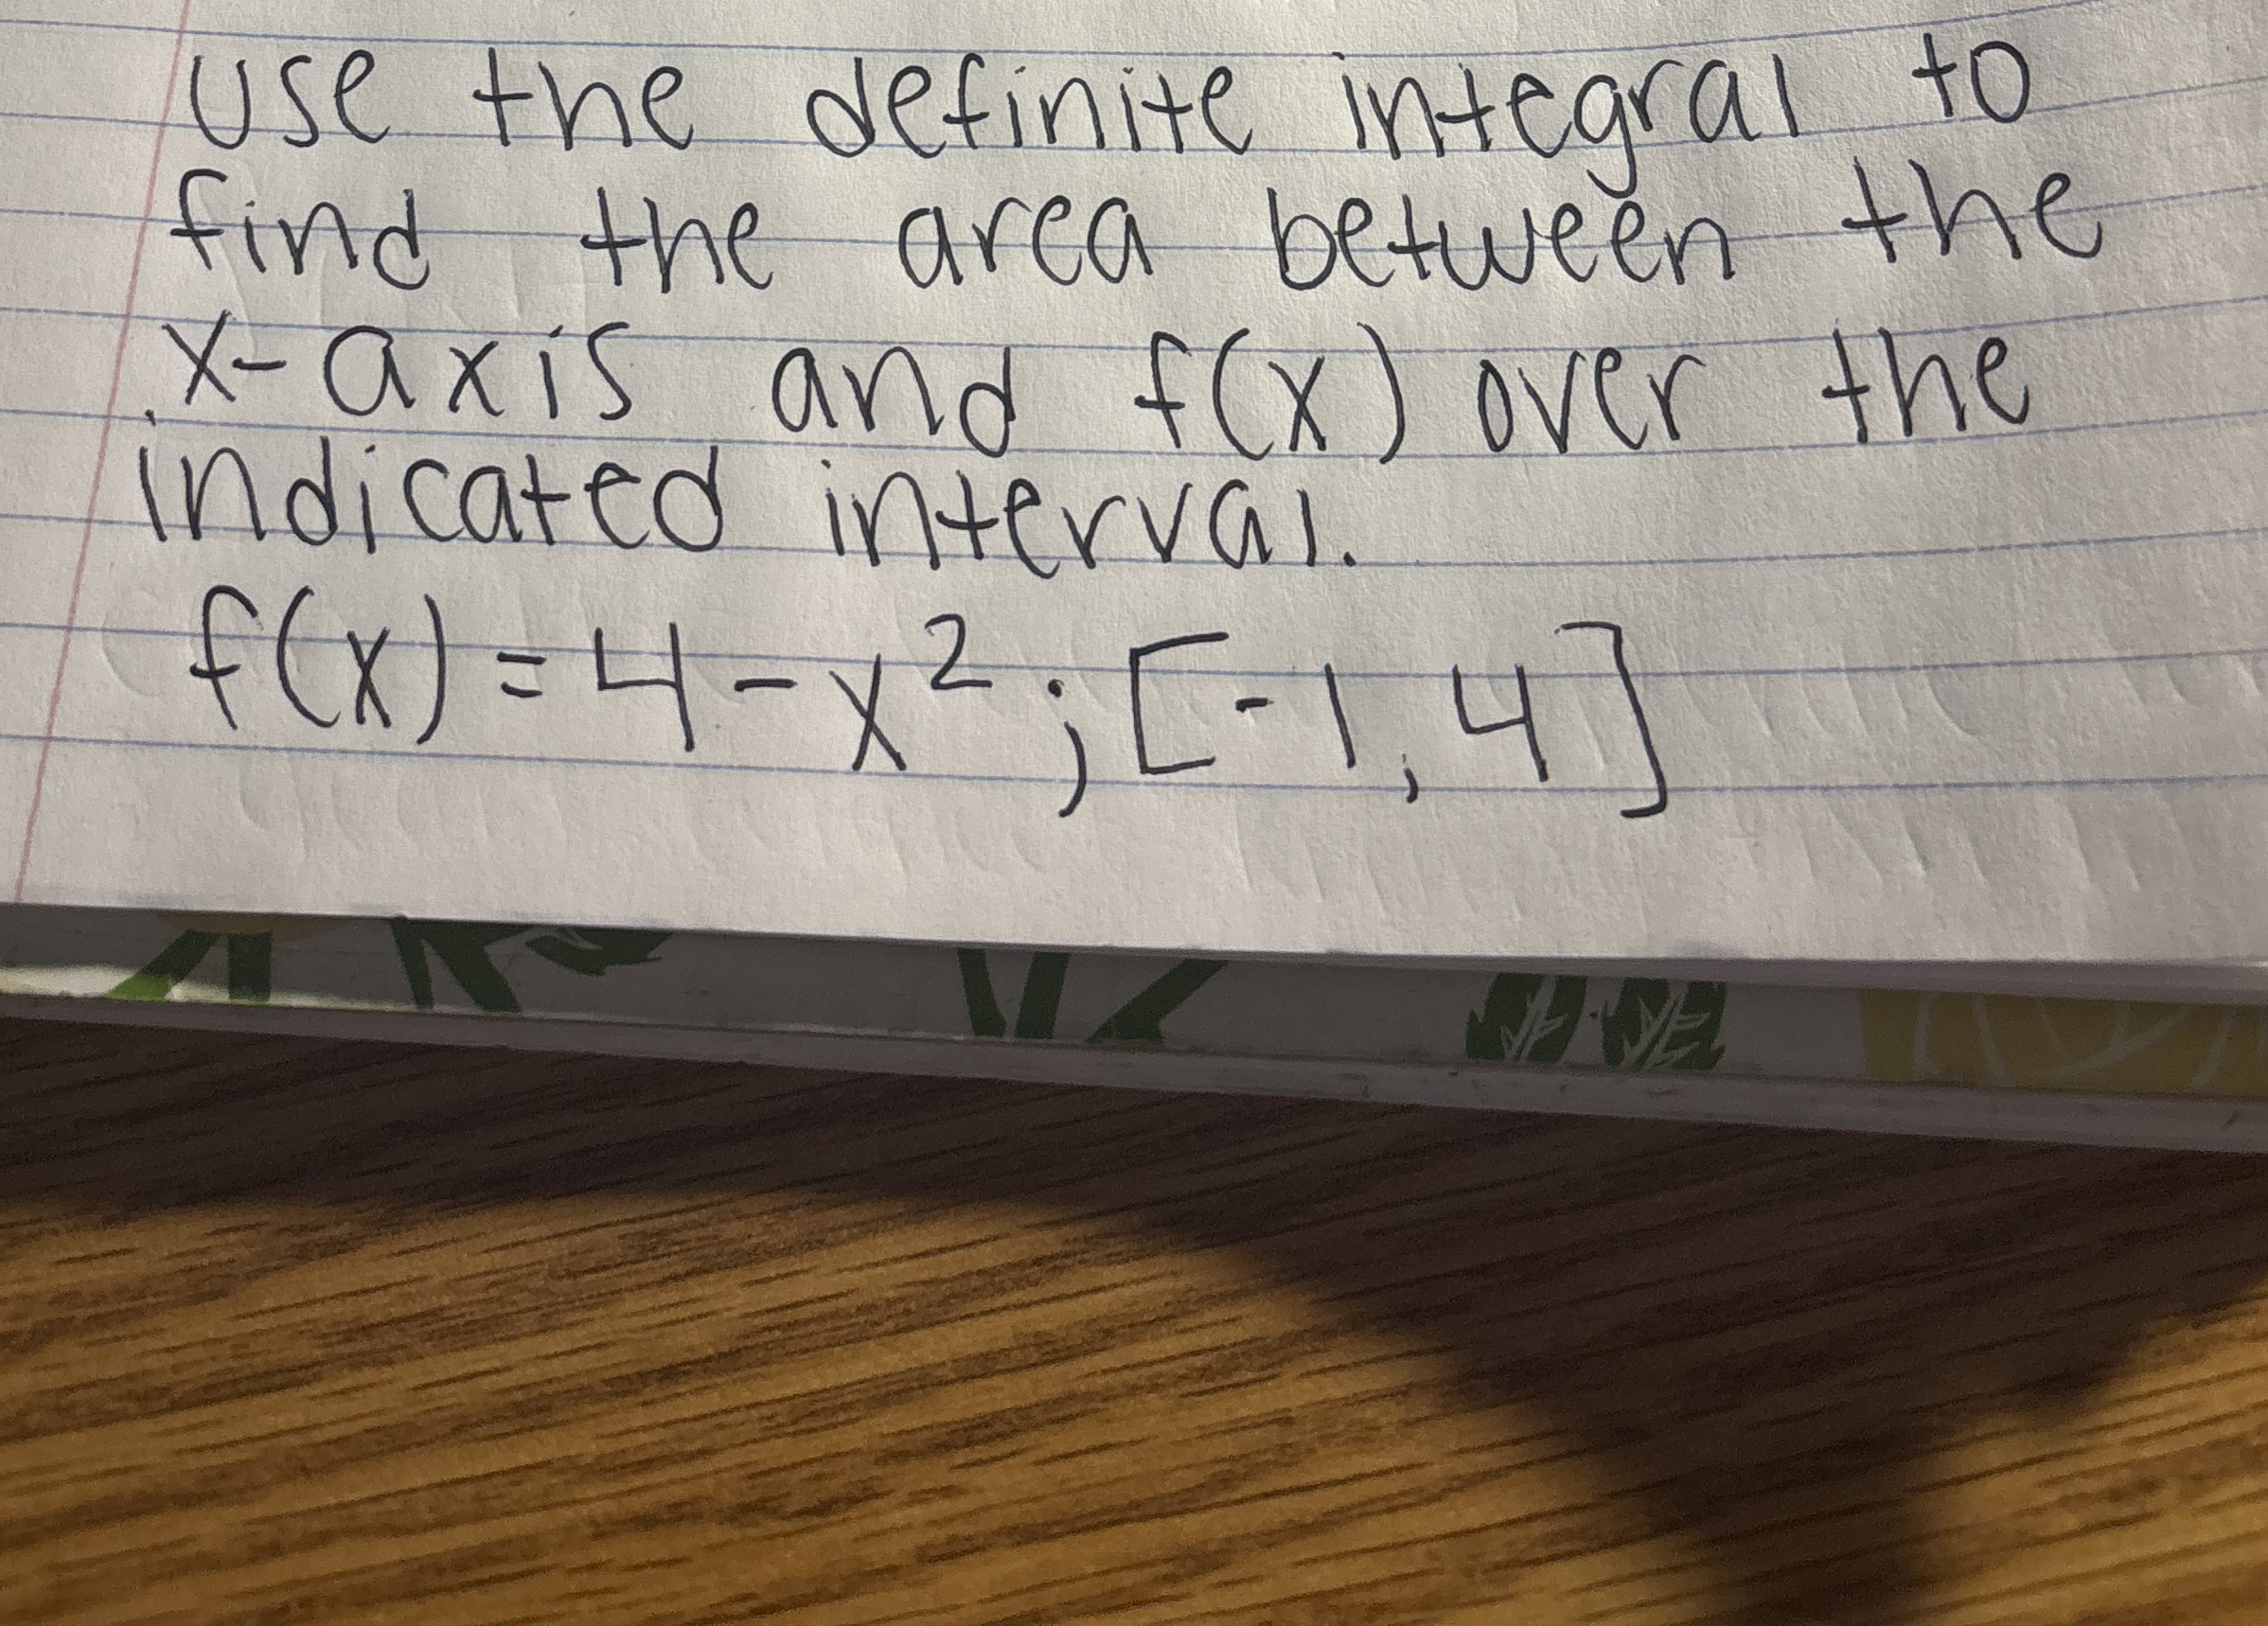 use the definite integral to
find the area between the
x-axis and f(x) over the
indicated interval.
f(x) = 4 - x²; [-1, 4]